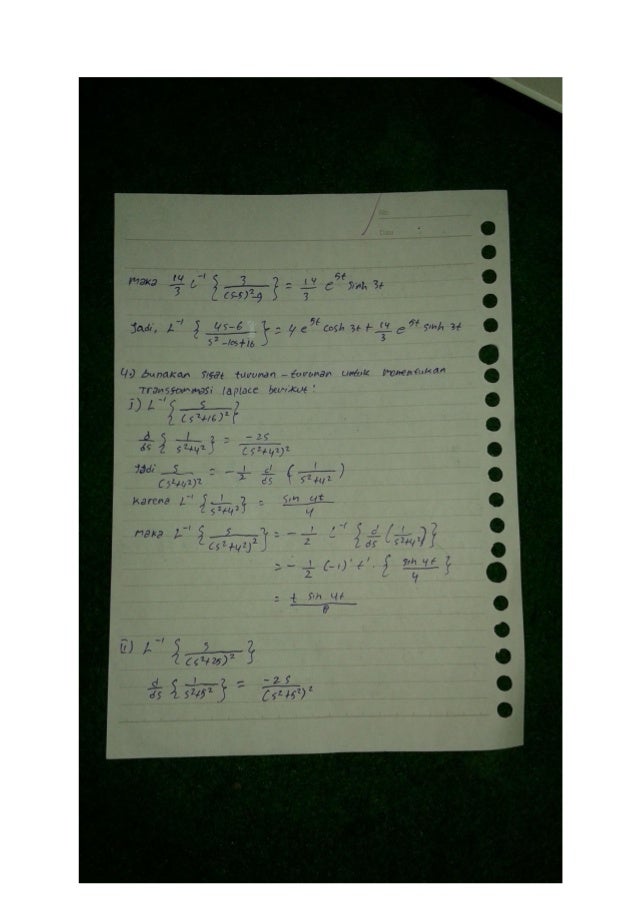 No.
Date
Maka 14/3 L⁻¹ { 3/((s-5)²-9) } = 14/3 e^5t sinh 3t
Jadi, L⁻¹ { (4s-6)/(s²-10s+16) } = 4 e^5t cosh 3t + 14/3 e^5t sinh 3t
4.) Gunakan sifat turunan-turunan untuk menentukan
Transformasi laplace berikut :
I) L⁻¹ { s/(s²+16)² }
d/ds { 1/(s²+4²) } = -2s/(s²+4²)²
Jadi s/(s²+4²)² = -1/2 d/ds (1/(s²+4²))
Karena L⁻¹ { 1/(s²+4²) } = sin 4t/4
Maka L⁻¹ { s/(s²+4²)² } = -1/2 L⁻¹ { d/ds (1/(s²+4²)) }
= -1/2 (-1)¹ t¹ . { sin 4t/4 }
= t sin 4t/8
II) L⁻¹ { s/(s²+25)² }
d/ds { 1/(s²+5²) } = -2s/(s²+5²)²